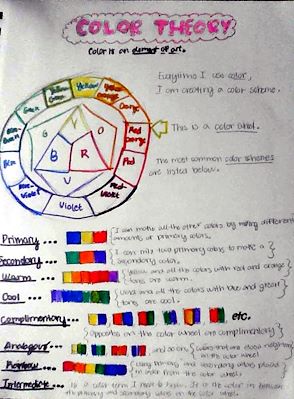 COLOR THEORY
Color is an element of art.
Everytime I use color,
I am creating a color scheme.
Yellow
Yellow Green
Yellow Orange
Green
Orange
Blue Green
Red Orange
Blue
Red
Blue Violet
Red Violet
Violet
Y
G
O
B
R
V
This is a color wheel.
The most common color schemes
are listed below.
Primary ... I can make all the other colors by mixing different
amounts of primary colors.
Secondary ... I can mix two primary colors to make a
secondary color.
Warm ... Yellow and all the colors with red and orange
tones are warm.
Cool ... and all the colors with blue and green
tones are cool.
Complimentary ... etc.
Opposites on the color wheel are complimentary
Analogous ... and so on colors that are
on the color wheel
Rainbow ... Using primary and secondary colors placed
in order from the color wheel.
Intermediate ... Is a color term I need to know. It is the color in between
the primary and secondary colors on the color wheel.